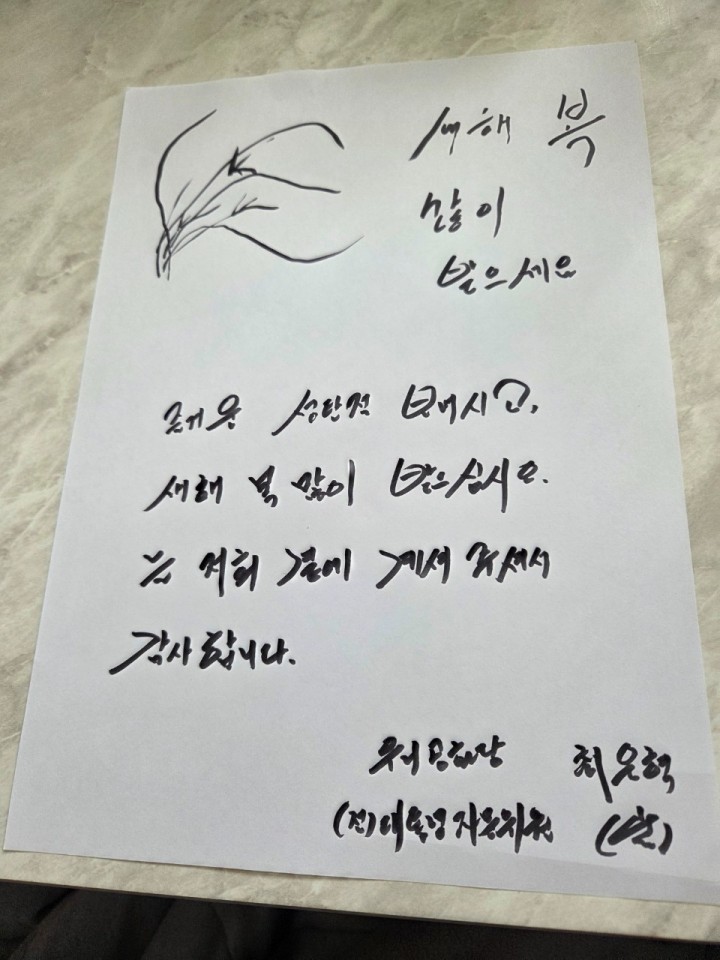 새해 복
많이
받으세요
즐거운 성탄절 보내시고,
새해 복 많이 받으십시오.
늘 저희 곁에 계셔 주셔서
감사합니다.
최은혁
(전)대통령자문위원